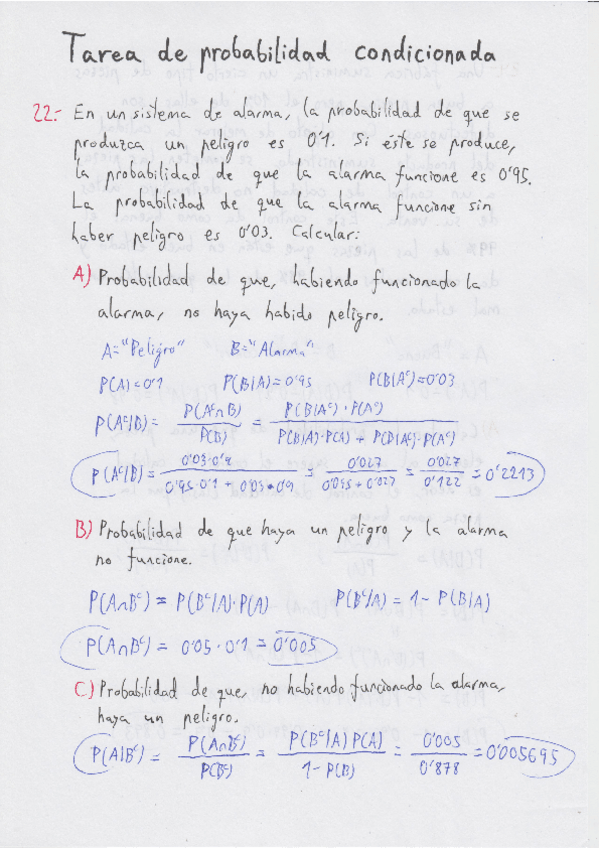 Tarea de probabilidad condicionada
22.- En un sistema de alarma, la probabilidad de que se
produzca un peligro es 0'1. Si éste se produce,
la probabilidad de que la alarma funcione es 0'95.
La probabilidad de que la alarma funcione sin
haber peligro es 0'03. Calcular:
A) Probabilidad de que, habiendo funcionado la
alarma, no haya habido peligro.
A="Peligro" B="Alarma"
P(A)=0'1 P(B|A)=0'95 P(B|Aᶜ)=0'03
P(Aᶜ|B)= P(Aᶜ∩B) / P(B) = P(B|Aᶜ)·P(Aᶜ) / P(B|A)·P(A) + P(B|Aᶜ)·P(Aᶜ)
P(Aᶜ|B)= 0'03·0'9 / 0'95·0'1 + 0'03·0'9 = 0'027 / 0'095 + 0'027 = 0'027 / 0'122 = 0'2213
B) Probabilidad de que haya un peligro y la alarma
no funcione.
P(A∩Bᶜ) = P(Bᶜ|A)·P(A) P(Bᶜ|A) = 1- P(B|A)
P(A∩Bᶜ) = 0'05 · 0'1 = 0'005
C) Probabilidad de que, no habiendo funcionado la alarma,
haya un peligro.
P(A|Bᶜ) = P(A∩Bᶜ) / P(Bᶜ) = P(Bᶜ|A) P(A) / 1-P(B) = 0'005 / 0'878 = 0'005695